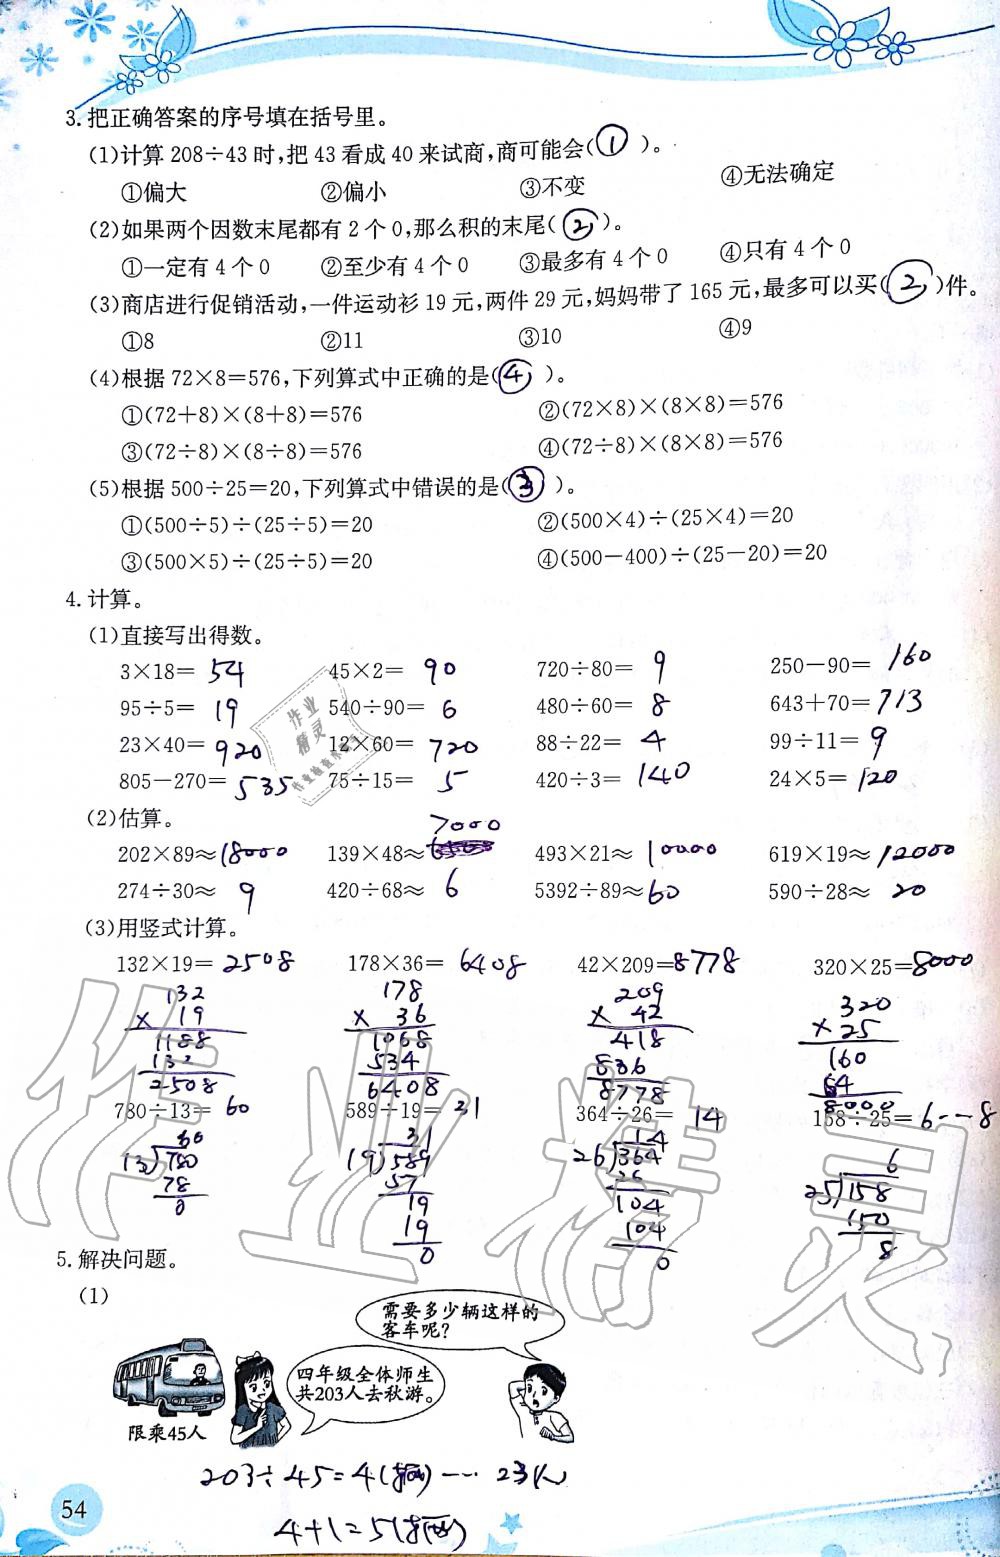 3.把正确答案的序号填在括号里。
(1)计算208÷43时,把43看成40来试商,商可能会(①)。
①偏大 ②偏小 ③不变 ④无法确定
(2)如果两个因数末尾都有2个0,那么积的末尾(②)。
①一定有4个0 ②至少有4个0 ③最多有4个0 ④只有4个0
(3)商店进行促销活动,一件运动衫19元,两件29元,妈妈带了165元,最多可以买(②)件。
①8 ②11 ③10 ④9
(4)根据72×8=576,下列算式中正确的是(④)。
①(72+8)×(8+8)=576 ②(72×8)×(8×8)=576
③(72÷8)×(8÷8)=576 ④(72÷8)×(8×8)=576
(5)根据500÷25=20,下列算式中错误的是(③)。
①(500÷5)÷(25÷5)=20 ②(500×4)÷(25×4)=20
③(500×5)÷(25÷5)=20 ④(500-400)÷(25-20)=20
4.计算。
(1)直接写出得数。
3×18= 54 45×2= 90 720÷80= 9 250-90= 160
95÷5= 19 540÷90= 6 480÷60= 8 643+70= 713
23×40= 920 12×60= 720 88÷22= 4 99÷11= 9
805-270= 535 75÷15= 5 420÷3= 140 24×5= 120
(2)估算。
7000
202×89≈ 18000 139×48≈ 493×21≈ 10000 619×19≈ 12000
274÷30≈ 9 420÷68≈ 6 5392÷89≈ 60 590÷28≈ 20
(3)用竖式计算。
132×19= 2508 178×36= 6408 42×209= 8778 320×25= 8000
132 178 209 320
× 19 × 36 × 42 × 25
1188 1068 418 160
132 534 836 64
2508 6408 8778 8000
780÷13= 60 589÷19= 31 364÷26= 14 158÷25= 6--8
60 31 14 6
13)780 19)589 26)364 25)158
78 57 26 150
0 19 104 8
19 104
0 0
5.解决问题。
(1)
需要多少辆这样的
客车呢?
四年级全体师生
共203人去秋游。
限乘45人
203÷45=4(辆)…23(人)
4+1=5(辆)
54
作业精灵
作业
精灵